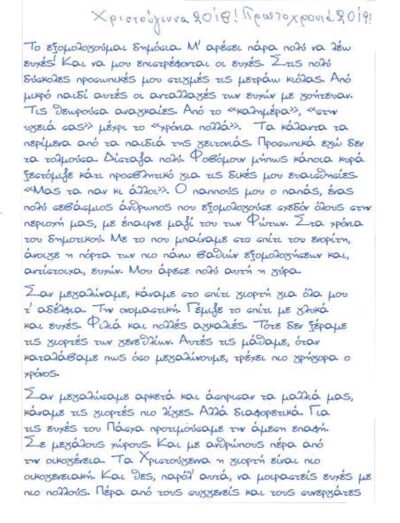 Χριστούγεννα 2018! Πρωτοχρονιά 2019!
Το εξομολογούμαι δημόσια. Μ' αρέσει πάρα πολύ να λέω
ευχές! Και να μου επιστρέφονται οι ευχές. Στις πολύ
δύσκολες προσωπικές μου στιγμές τις μετράω κιόλας. Από
μικρό παιδί αυτές οι ανταλλαγές των ευχών με γοήτευαν.
Τις θεωρούσα αναγκαίες. Από το «καλημέρα», «στην
υγειά σας» μέχρι το «χρόνια πολλά». Τα κάλαντα τα
περίμενα από τα παιδιά της γειτονιάς. Προσωπικά εγώ δεν
τα τολμούσα. Δίσταζα πολύ. Φοβόμουν μήπως κάποια κυρά
ξεστόμιζε κάτι προσβλητικό για τις δικές μου ευαισθησίες.
«Μας τα παν κι άλλοι». Ο παππούς μου ο παπάς, ένας
πολύ σεβάσμιος άνθρωπος που εξομολογούσε σχεδόν όλους στην
περιοχή μας, με έπαιρνε μαζί του των Φώτων. Στα χρόνια
του δημοτικού. Με το που μπαίναμε στο σπίτι του ενορίτη,
άνοιγε η πόρτα των πιο πάνω βαθιών εξομολογήσεων και,
αντίστοιχα, ευχών. Μου άρεσε πολύ αυτή η γύρα.
Σαν μεγαλώναμε, κάναμε στο σπίτι γιορτή για όλα μου
τ' αδέλφια. Την ονομαστική. Γέμιζε το σπίτι με γλυκά
και ευχές. Φιλιά και πολλές αγκαλιές. Τότε δεν ξέραμε
τις γιορτές των γενεθλίων. Αυτές τις μάθαμε, όταν
καταλάβαμε πως όσο μεγαλώνουμε, τρέχει πιο γρήγορα ο
χρόνος.
Σαν μεγαλώσαμε αρκετά και άσπρισαν τα μαλλιά μας,
κάναμε τις γιορτές πιο λίγες. Αλλά διαφορετικά. Για
τις ευχές του Πάσχα προτιμούσαμε την άμεση επαφή.
Σε μεγάλους χώρους. Και με ανθρώπους πέρα από
την οικογένεια. Τα Χριστούγεννα η γιορτή είναι πιο
οικογενειακή. Και θες, παρόλ' αυτά, να μοιραστείς ευχές με
πιο πολλούς. Πέρα από τους συγγενείς και τους συνεργάτες